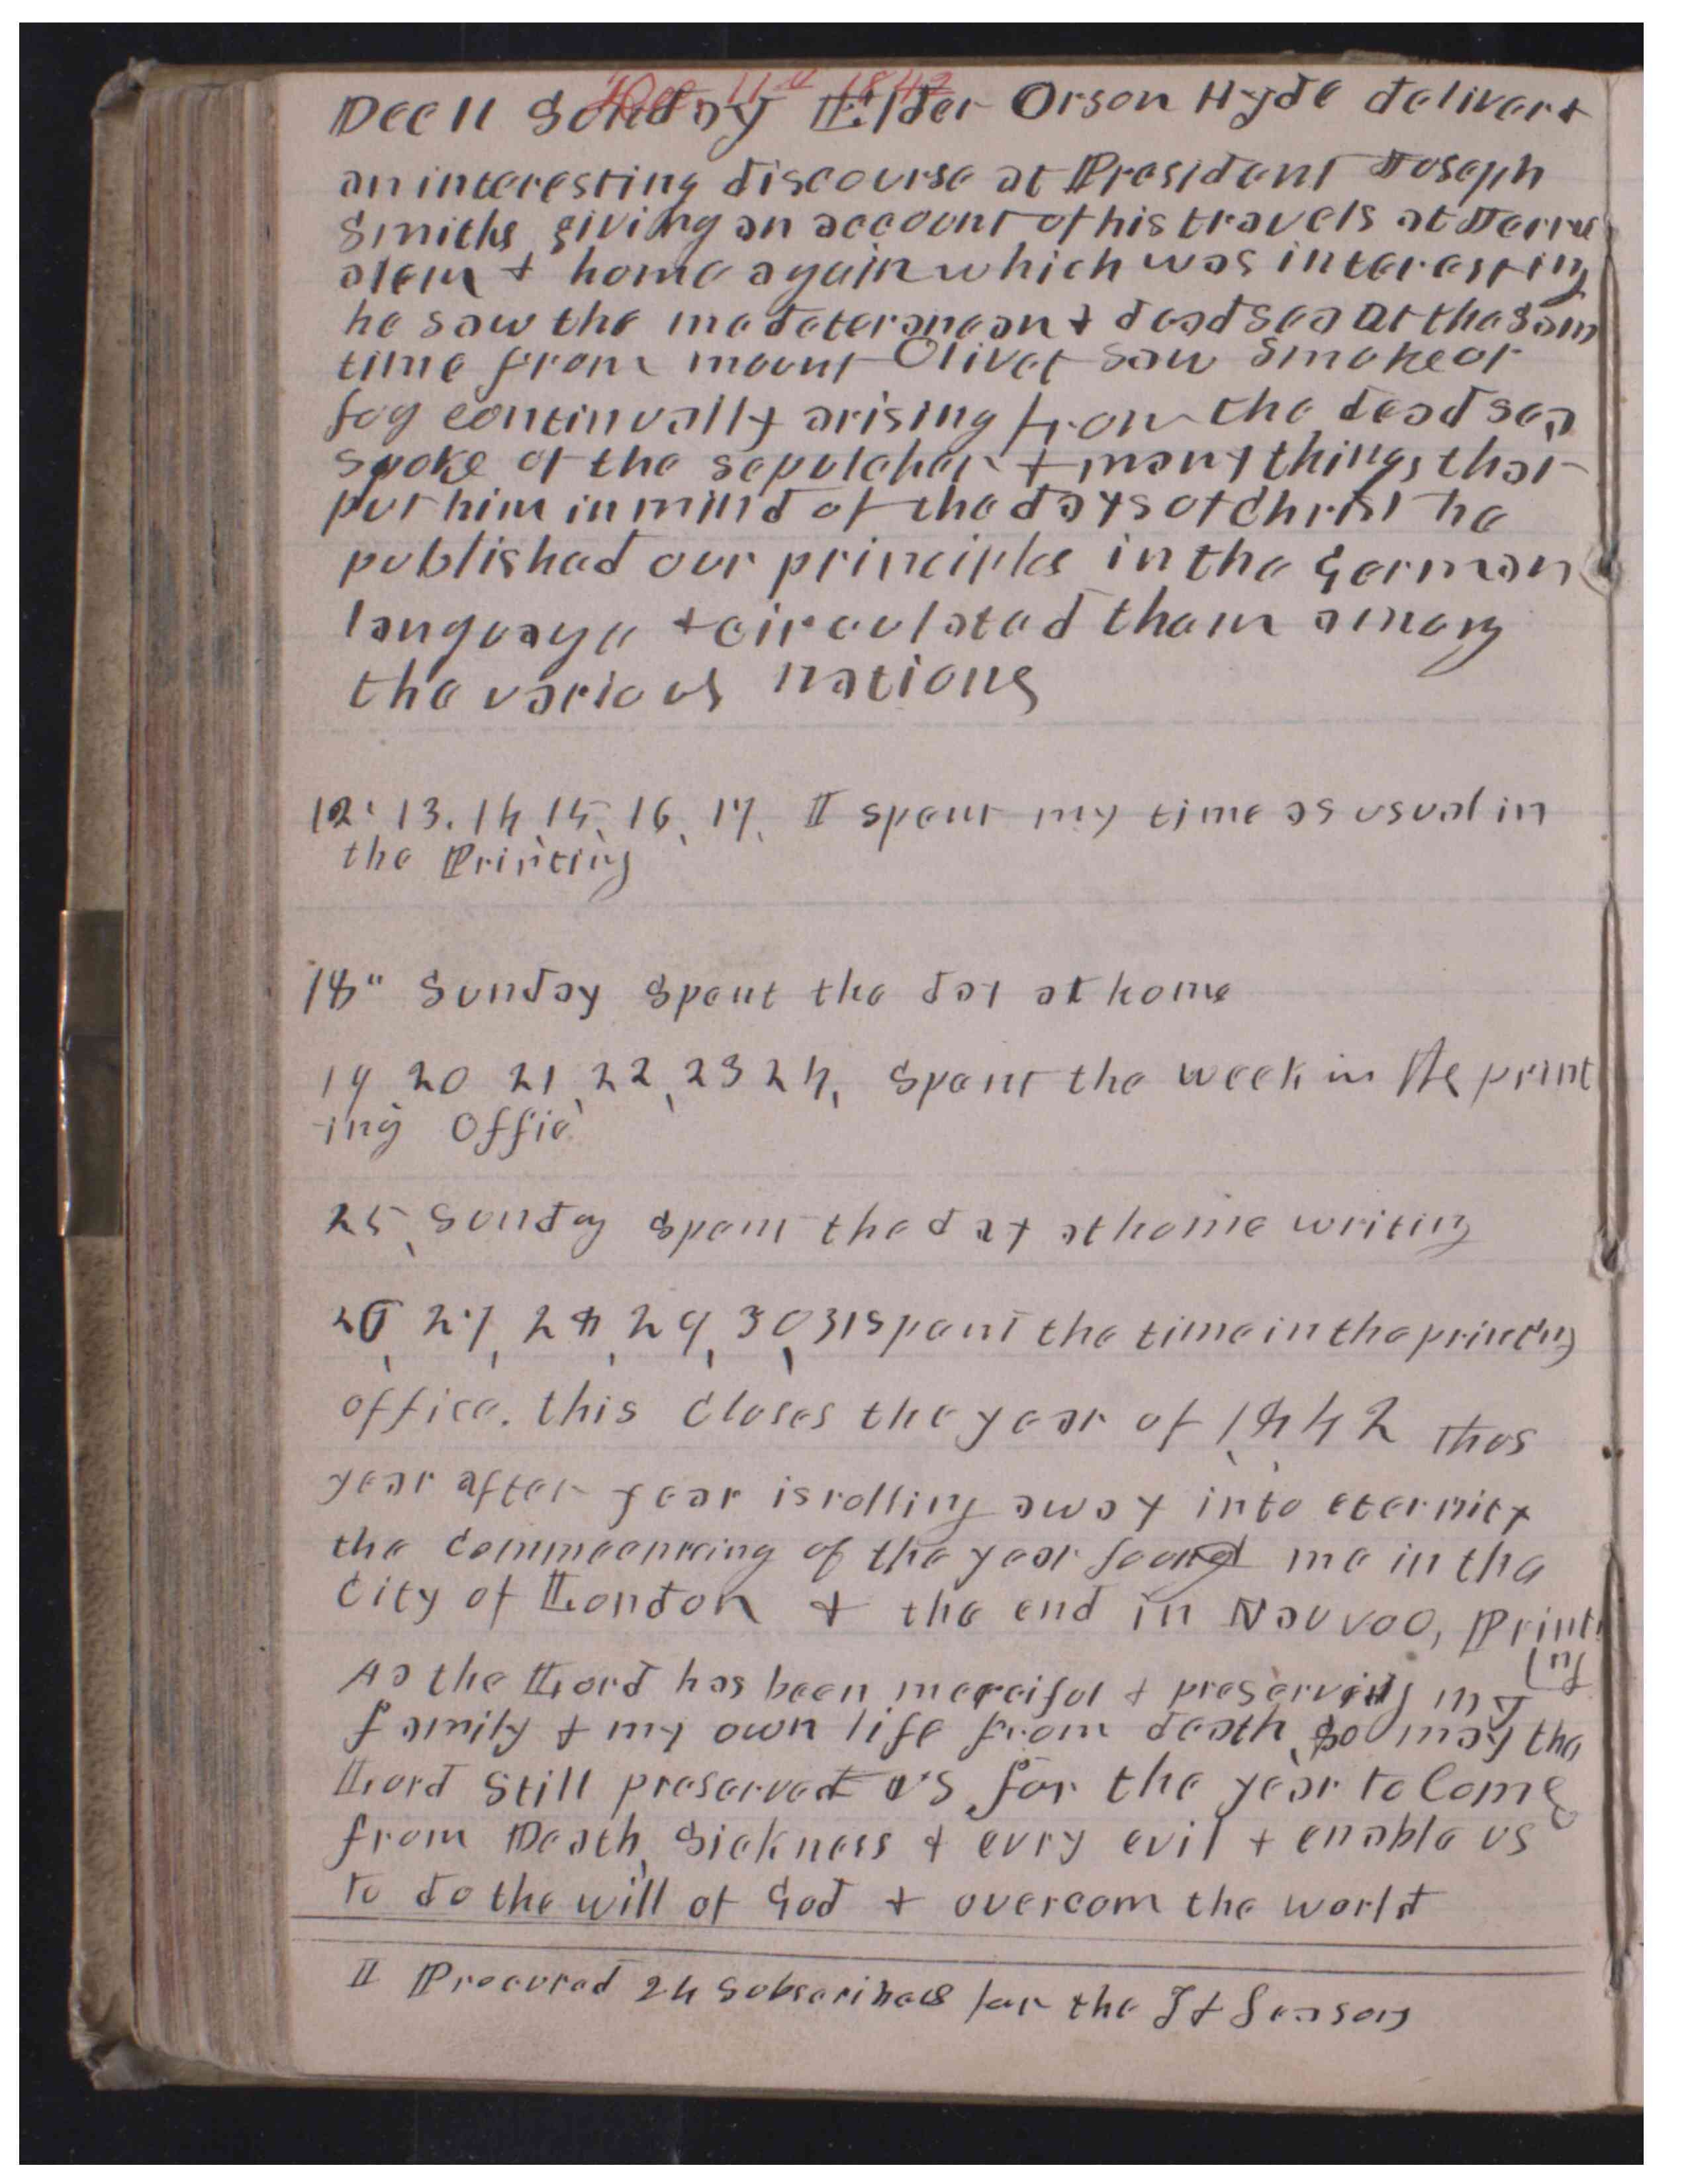 Dec. 11th 1842
Dec 11 Sunday Elder Orson Hyde deliverd
an interesting discourse at President Joseph
Smiths giving an account of his travels at Jerrus
alem & home again which was interesting
he saw the medeteranean & dead sea at the sam
time from mount Olivet saw smoke or
fog continually arising from the dead sea
spoke of the sepulcher & many things that
put him in mind of the days of Christ he
published our principles in the German
language & circulated them among
the various nations
12. 13. 14, 15, 16, 17, I spent my time as usual in
the Printing
18" Sunday spent the day at home
19, 20 21, 22, 23 24, spent the week in the print
ing Offic
25, Sunday spent the day at home writing
26, 27, 28, 29, 30, 31 spent the time in the printing
office. this closes the year of 1842 thus
year after year is rolling away into eternity
the commencing of the year found me in the
City of London & the end in Nauvoo, Print
ing
As the Lord has been merciful & preserving my
family & my own life from death, so may the
Lord still preserved us for the year to Come
from Death, Sickness & evry evil & enable us
to do the will of God & overcom the world
I Procured 24 subscribers for the T & Seasons